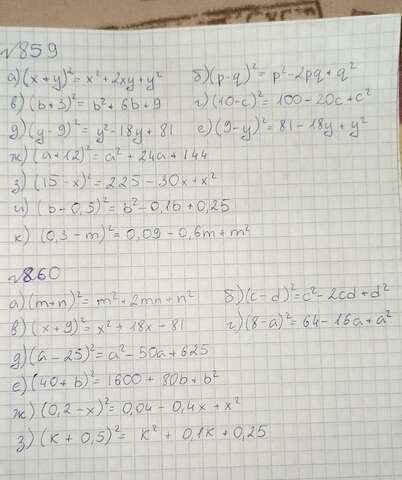 №859
а) (x+y)² = x² + 2xy + y² б) (p-q)² = p² - 2pq + q²
в) (b+3)² = b² + 6b + 9 г) (10-c)² = 100 - 20c + c²
д) (y-9)² = y² - 18y + 81 є) (9-y)² = 81 - 18y + y²
ж) (a+12)² = a² + 24a + 144
з) (15-x)² = 225 - 30x + x²
и) (b-0,5)² = b² - 0,1b + 0,25
к) (0,3-m)² = 0,09 - 0,6m + m²
№860
а) (m+n)² = m² + 2mn + n² б) (c-d)² = c² - 2cd + d²
в) (x+9)² = x² + 18x - 81 г) (8-a)² = 64 - 16a + a²
д) (a-25)² = a² - 50a + 625
є) (40+b)² = 1600 + 80b + b²
ж) (0,2-x)² = 0,04 - 0,4x + x²
з) (k+0,5)² = k² + 0,1k + 0,25